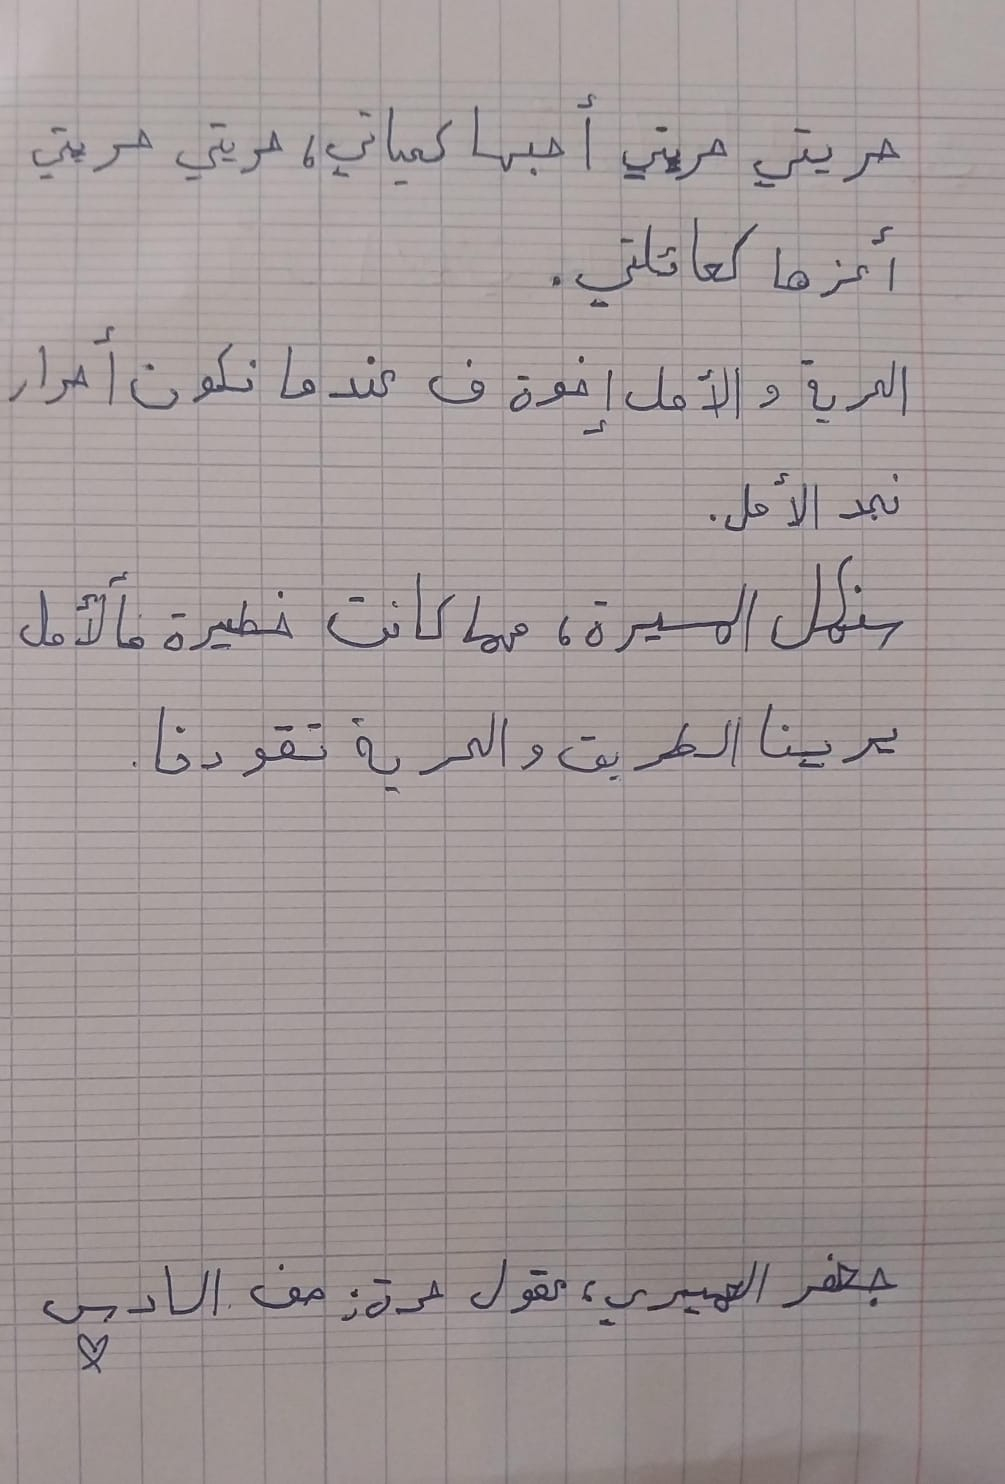 حريتي حريتي أحبها كحياتي، حريتي حريتي
أعزها كعائلتي.
الحرية و الأمل إخوة ف عندما نكون أحرار
نجد الأمل.
سنكمل المسيرة، مهما كانت خطيرة فألأمل
يرينا الطريق والحرية تقودنا.
جعفر العميري، عقول حرة: صف السادس